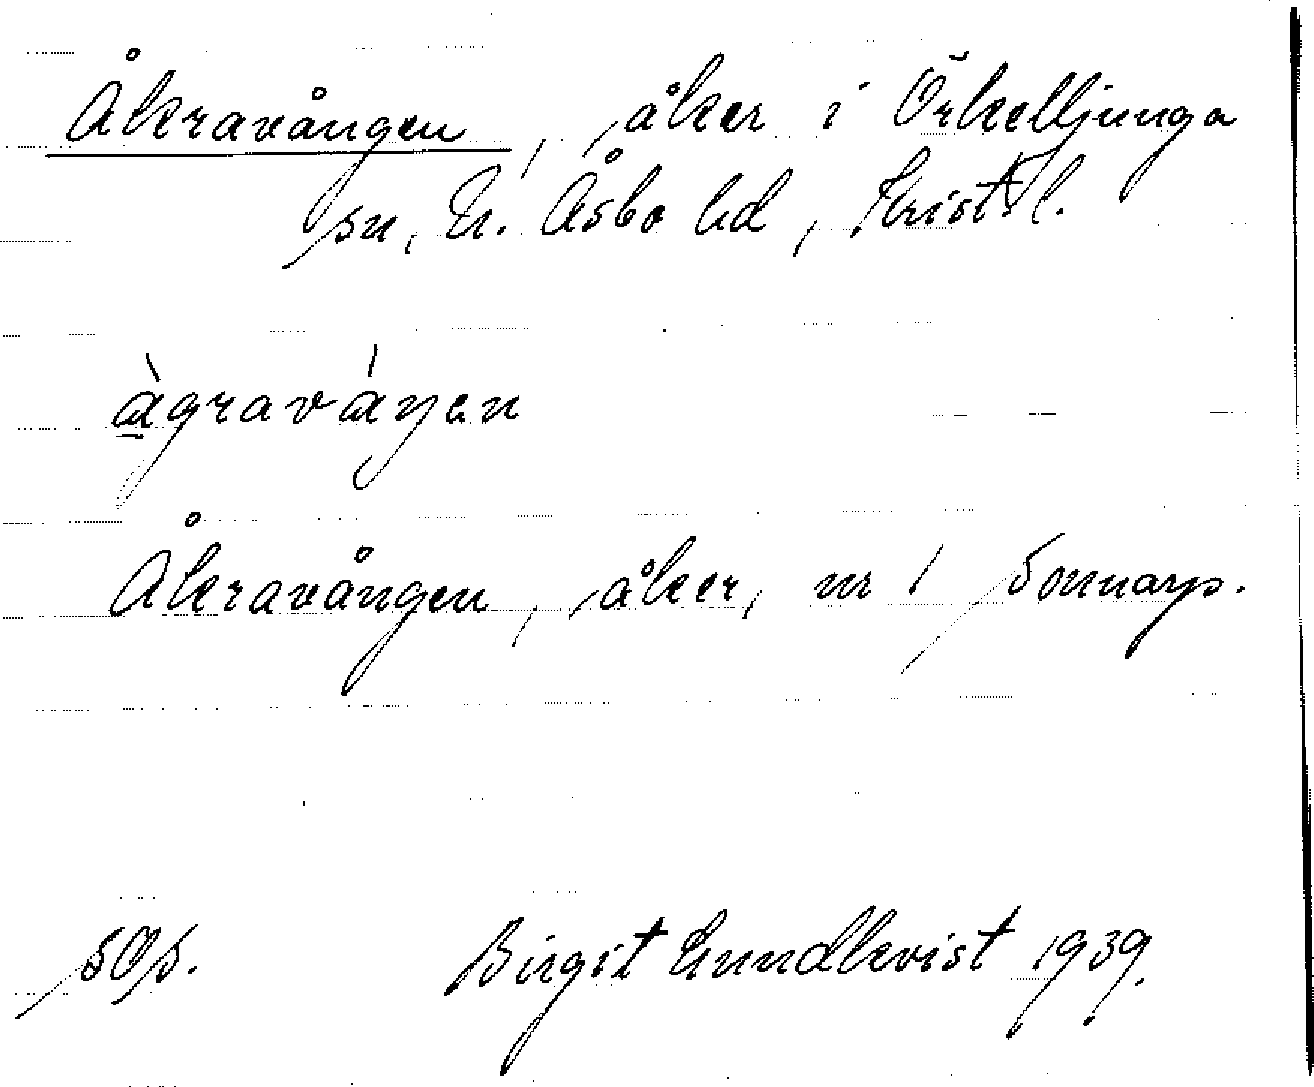 Åkravången, åker i Örkelljunga
sn, N. Åsbo hd, Krist. l.
àgraváŋen
Åkravången, åker, nr 1 Sonnarp.
SOƒ.
Birgit Lundkvist 1939.